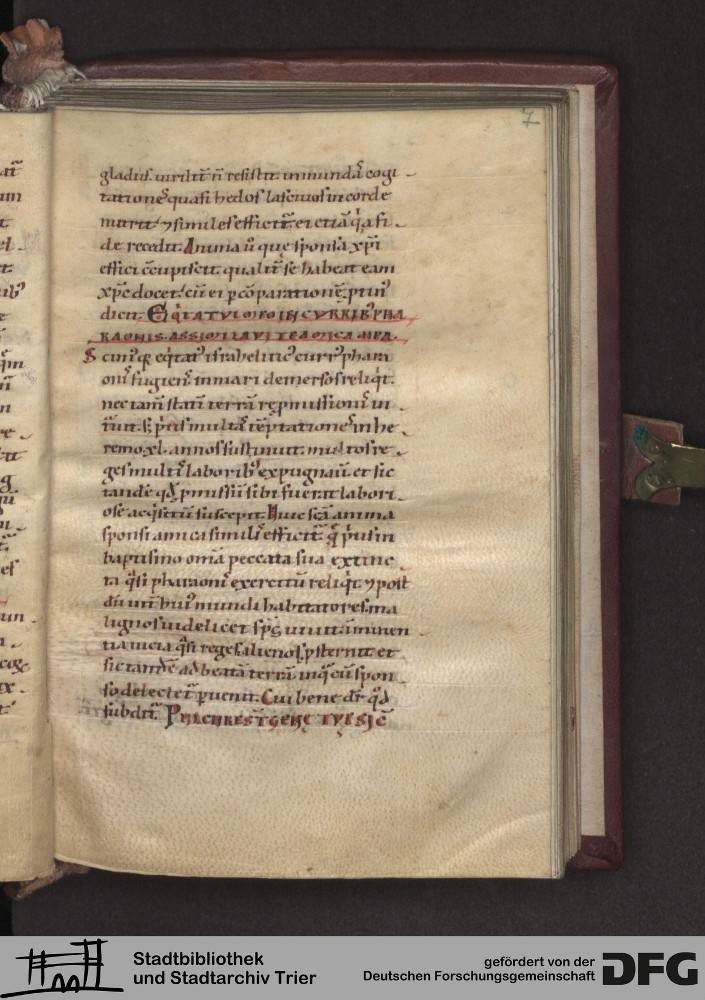 7
gladiuſ. uirilit̄ n̄ reſiſtit. inmundaſ cogi
tationeſ quaſi hedoſ laſciuoſ in corde
nutrit. ⁊ ſimileſ efficit̄. ei etiā q̇ a fi
de recedit. Anima u̅ que ſponſa xp̄i
effici c̄cupiſcit. qualit̄ ſe habeat eam
xp̄c docet. cū ei p cōparationē ptin
dicit. EQITATVI MEO IN CVRRIB PHA
RAONIS. ASSIMILAVI TE AMICA MEA.
Sicut
oniſ fugienſ in mari demerſoſ reliq̇t.
nec tam̄ ſtatī terrā rep̱miſſioniſ in
remo xl. annoſ ſuſtinuit. multoſ re
geſ multiſ laborib expugnauı̄t. et ſic
tandē qd̄ p̱miſſū ſibi fuerat labori
oſe acq̇ſitū ſuſcepit. Huic ſcā anima
ſponſi amica ſimiliſ efficit̄. q̄ ṗuſ in
baptiſmo om̄ia peccata ſua extinc
ta q̇ſi pharaoniſ exercitū reliq̇t. ⁊ poſt
dū uitī huiꝰ mundi habitatoreſ. ma
lignoſ uidelicet ſp̄c. uirtutū inuen
tia uicia q̇ſi regeſ alienoſ pſternit. et
ſic tandē ad beatā terrā in q̇ cū ſpon
ſo delectet̄ puenit. Cui bene dr̄ qd̄
ſubdit̄. PVLCHRE SVT GENE TVE SIC
Stadtbibliothek
und Stadtarchiv Trier
gefördert von der
Deutschen Forschungsgemeinschaft
DFG